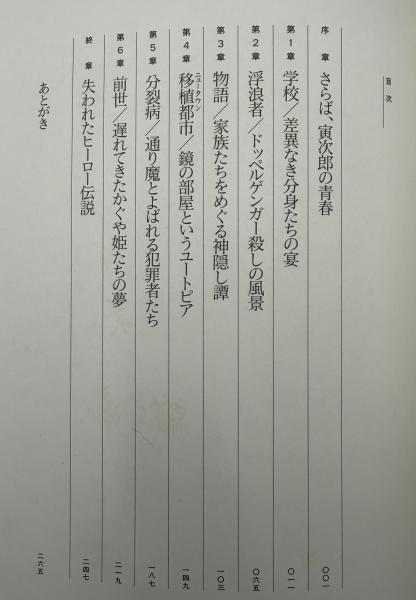 目次
序章 さらば、寅次郎の青春 〇〇一
第1章 学校／差異なき分身たちの宴 〇一一
第2章 浮浪者／ドッペルゲンガー殺しの風景 〇六五
第3章 物語／家族たちをめぐる神隠し譚 一〇三
第4章 移植都市／鏡の部屋というユートピア 一四九
ニュータウン
第5章 分裂病／通り魔とよばれる犯罪者たち 一八七
第6章 前世／遅れてきたかぐや姫たちの夢 二一九
終章 失われたヒーロー伝説 二四七
あとがき 二六五